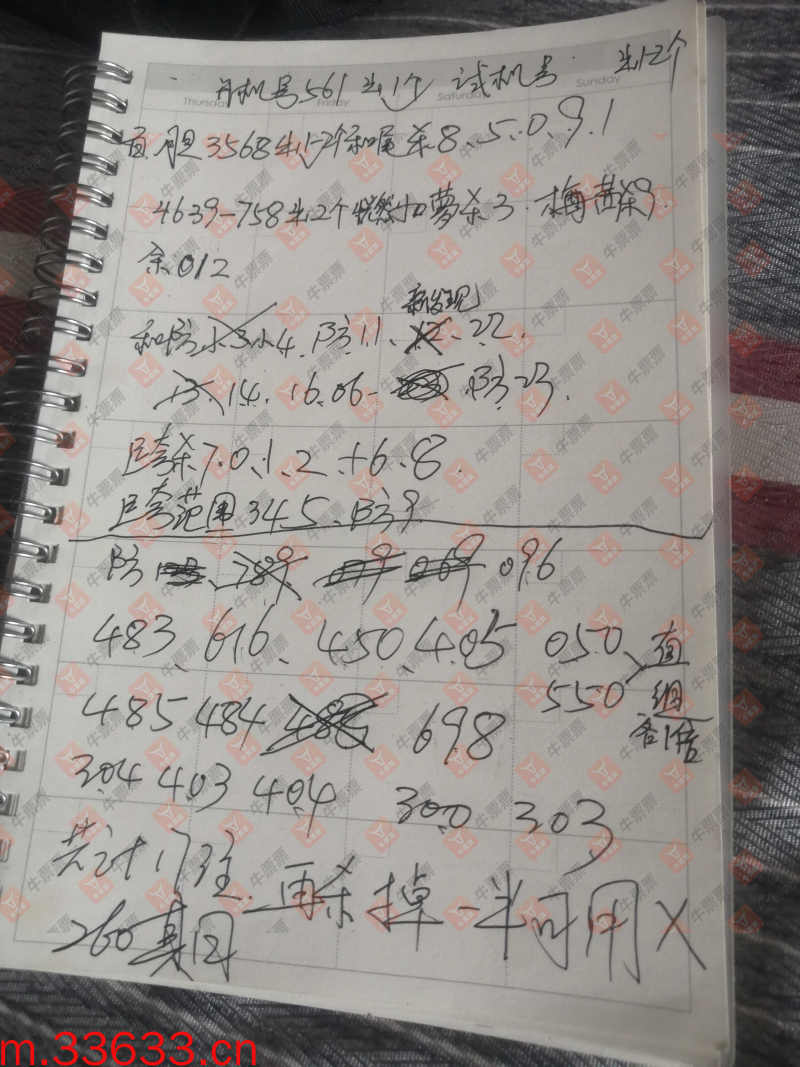 开机号561出1个 试机号 出1-2个
Thursday Friday Saturday Sunday
百胆3568出1-2个和尾杀8、5、0、9、1
4639-758出2个 加夢杀3.梅 9.
杀012
新发现
和防 小4.防11、22.
14.16.06- 防23.
跨杀7.0、1、2 +6.8.
跨范围345、防9
防 096
483、616、450、405 050
550 直
组
各1倍
485 484 698
304 403 404 300 303
共计17注 再杀掉一半可用
260期
牛票票
m.33633.cn